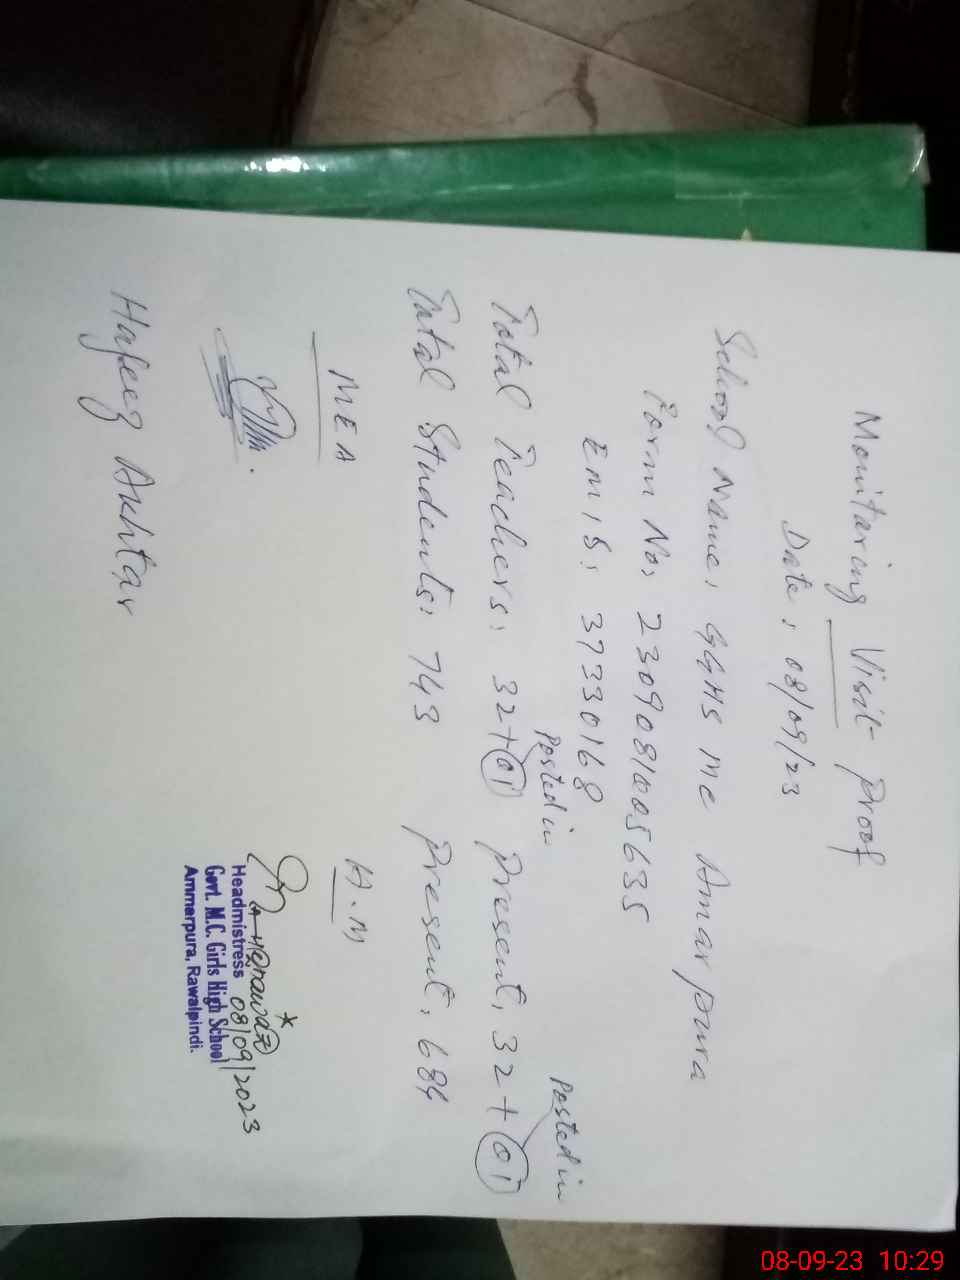 Monitaring Visit Proof
Date: 08/09/23
School Name: GGHS MC Amarpura
Form No: 2309081005635
EMIS: 37330168
Posted in Posted in
Total Teachers: 32+01 Present: 32+01
Total Students: 743 Present: 684
MEA H.M
08/09/2023
Headmistress
Govt. M.C. Girls High School
Ammerpura, Rawalpindi.
Hafeez Akhtar
08-09-23 10:29